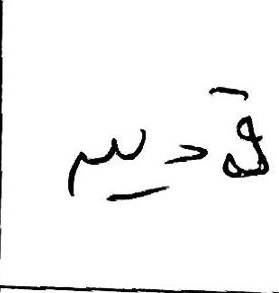 قديس